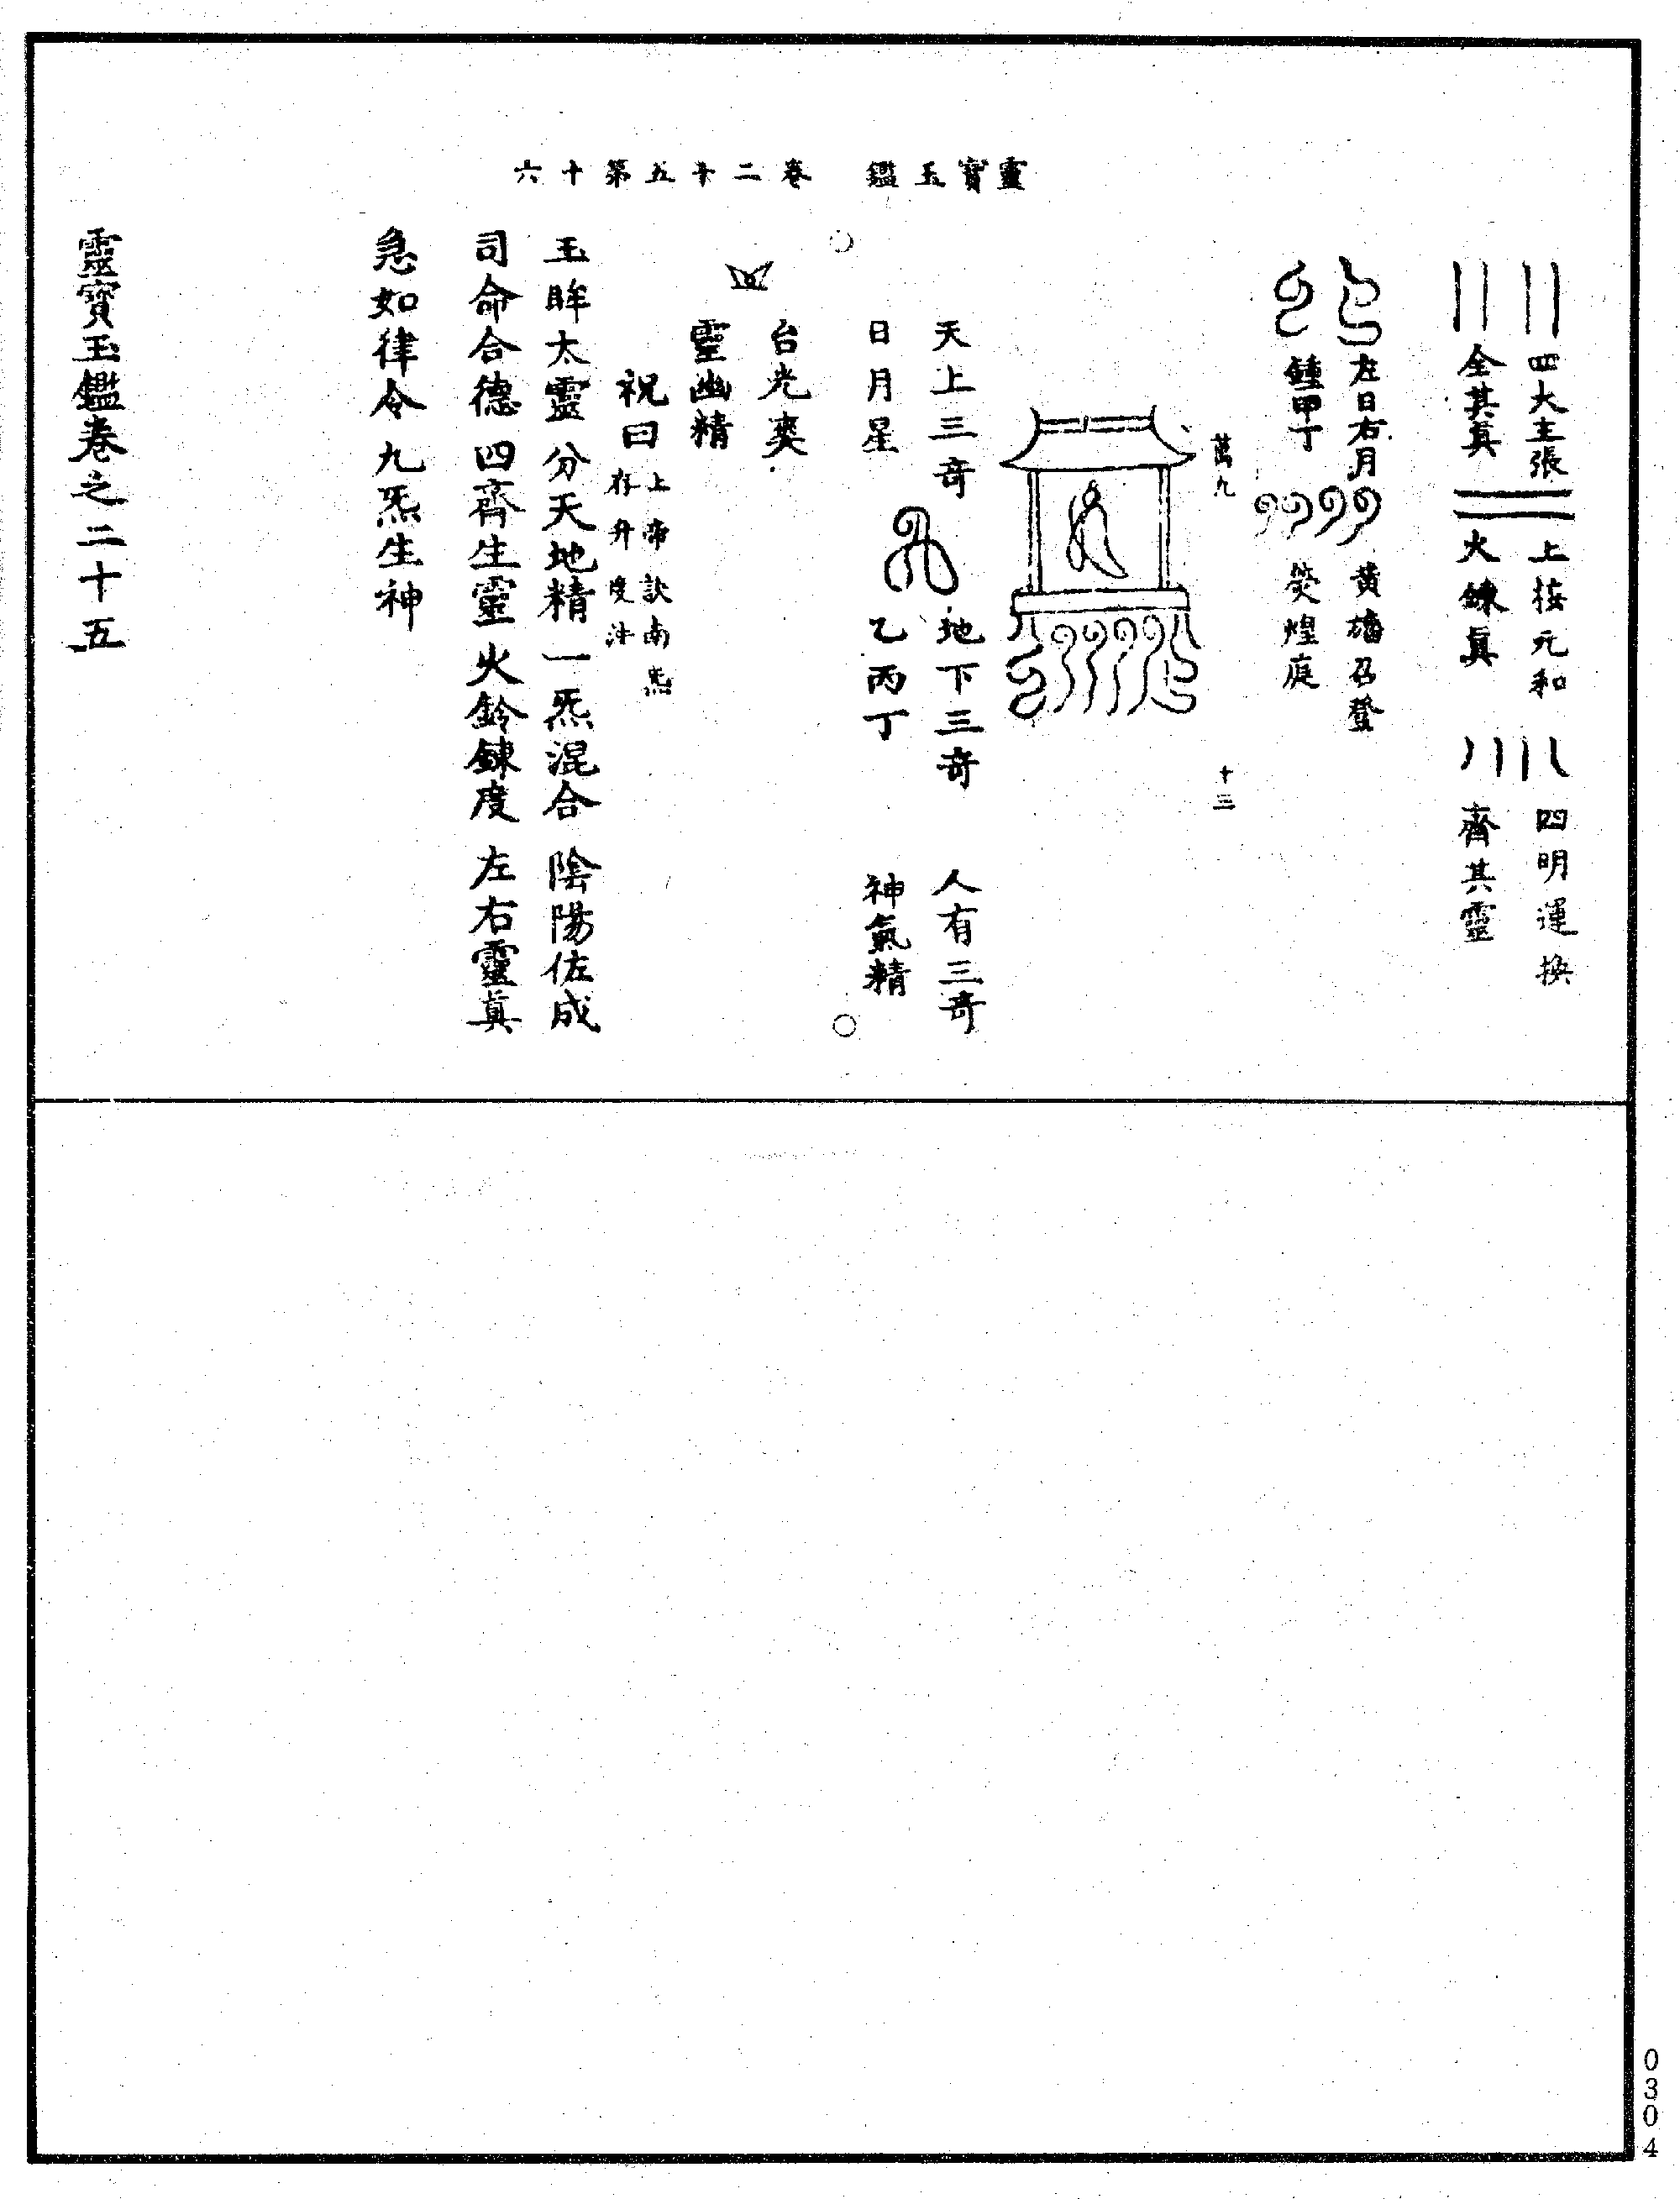 靈寶玉鑑 卷二十五第十六
四大主張 上接元和 四明運換
全其眞 火鍊眞 齊其靈
左日右月 黃旛召登
鍾甲丁 熒煌庭
萬九 十三
天上三奇 地下三奇 人有三奇
日月星 乙丙丁 神氣精
台光奕
靈幽精
祝曰 上帝訣南炁
存升度法
玉眸太靈 分天地精 一炁混合 陰陽佐成
司命合德 四齊生靈 火鈴鍊度 左右靈眞
急如律令 九炁生神
靈寶玉鑑卷之二十五
0304